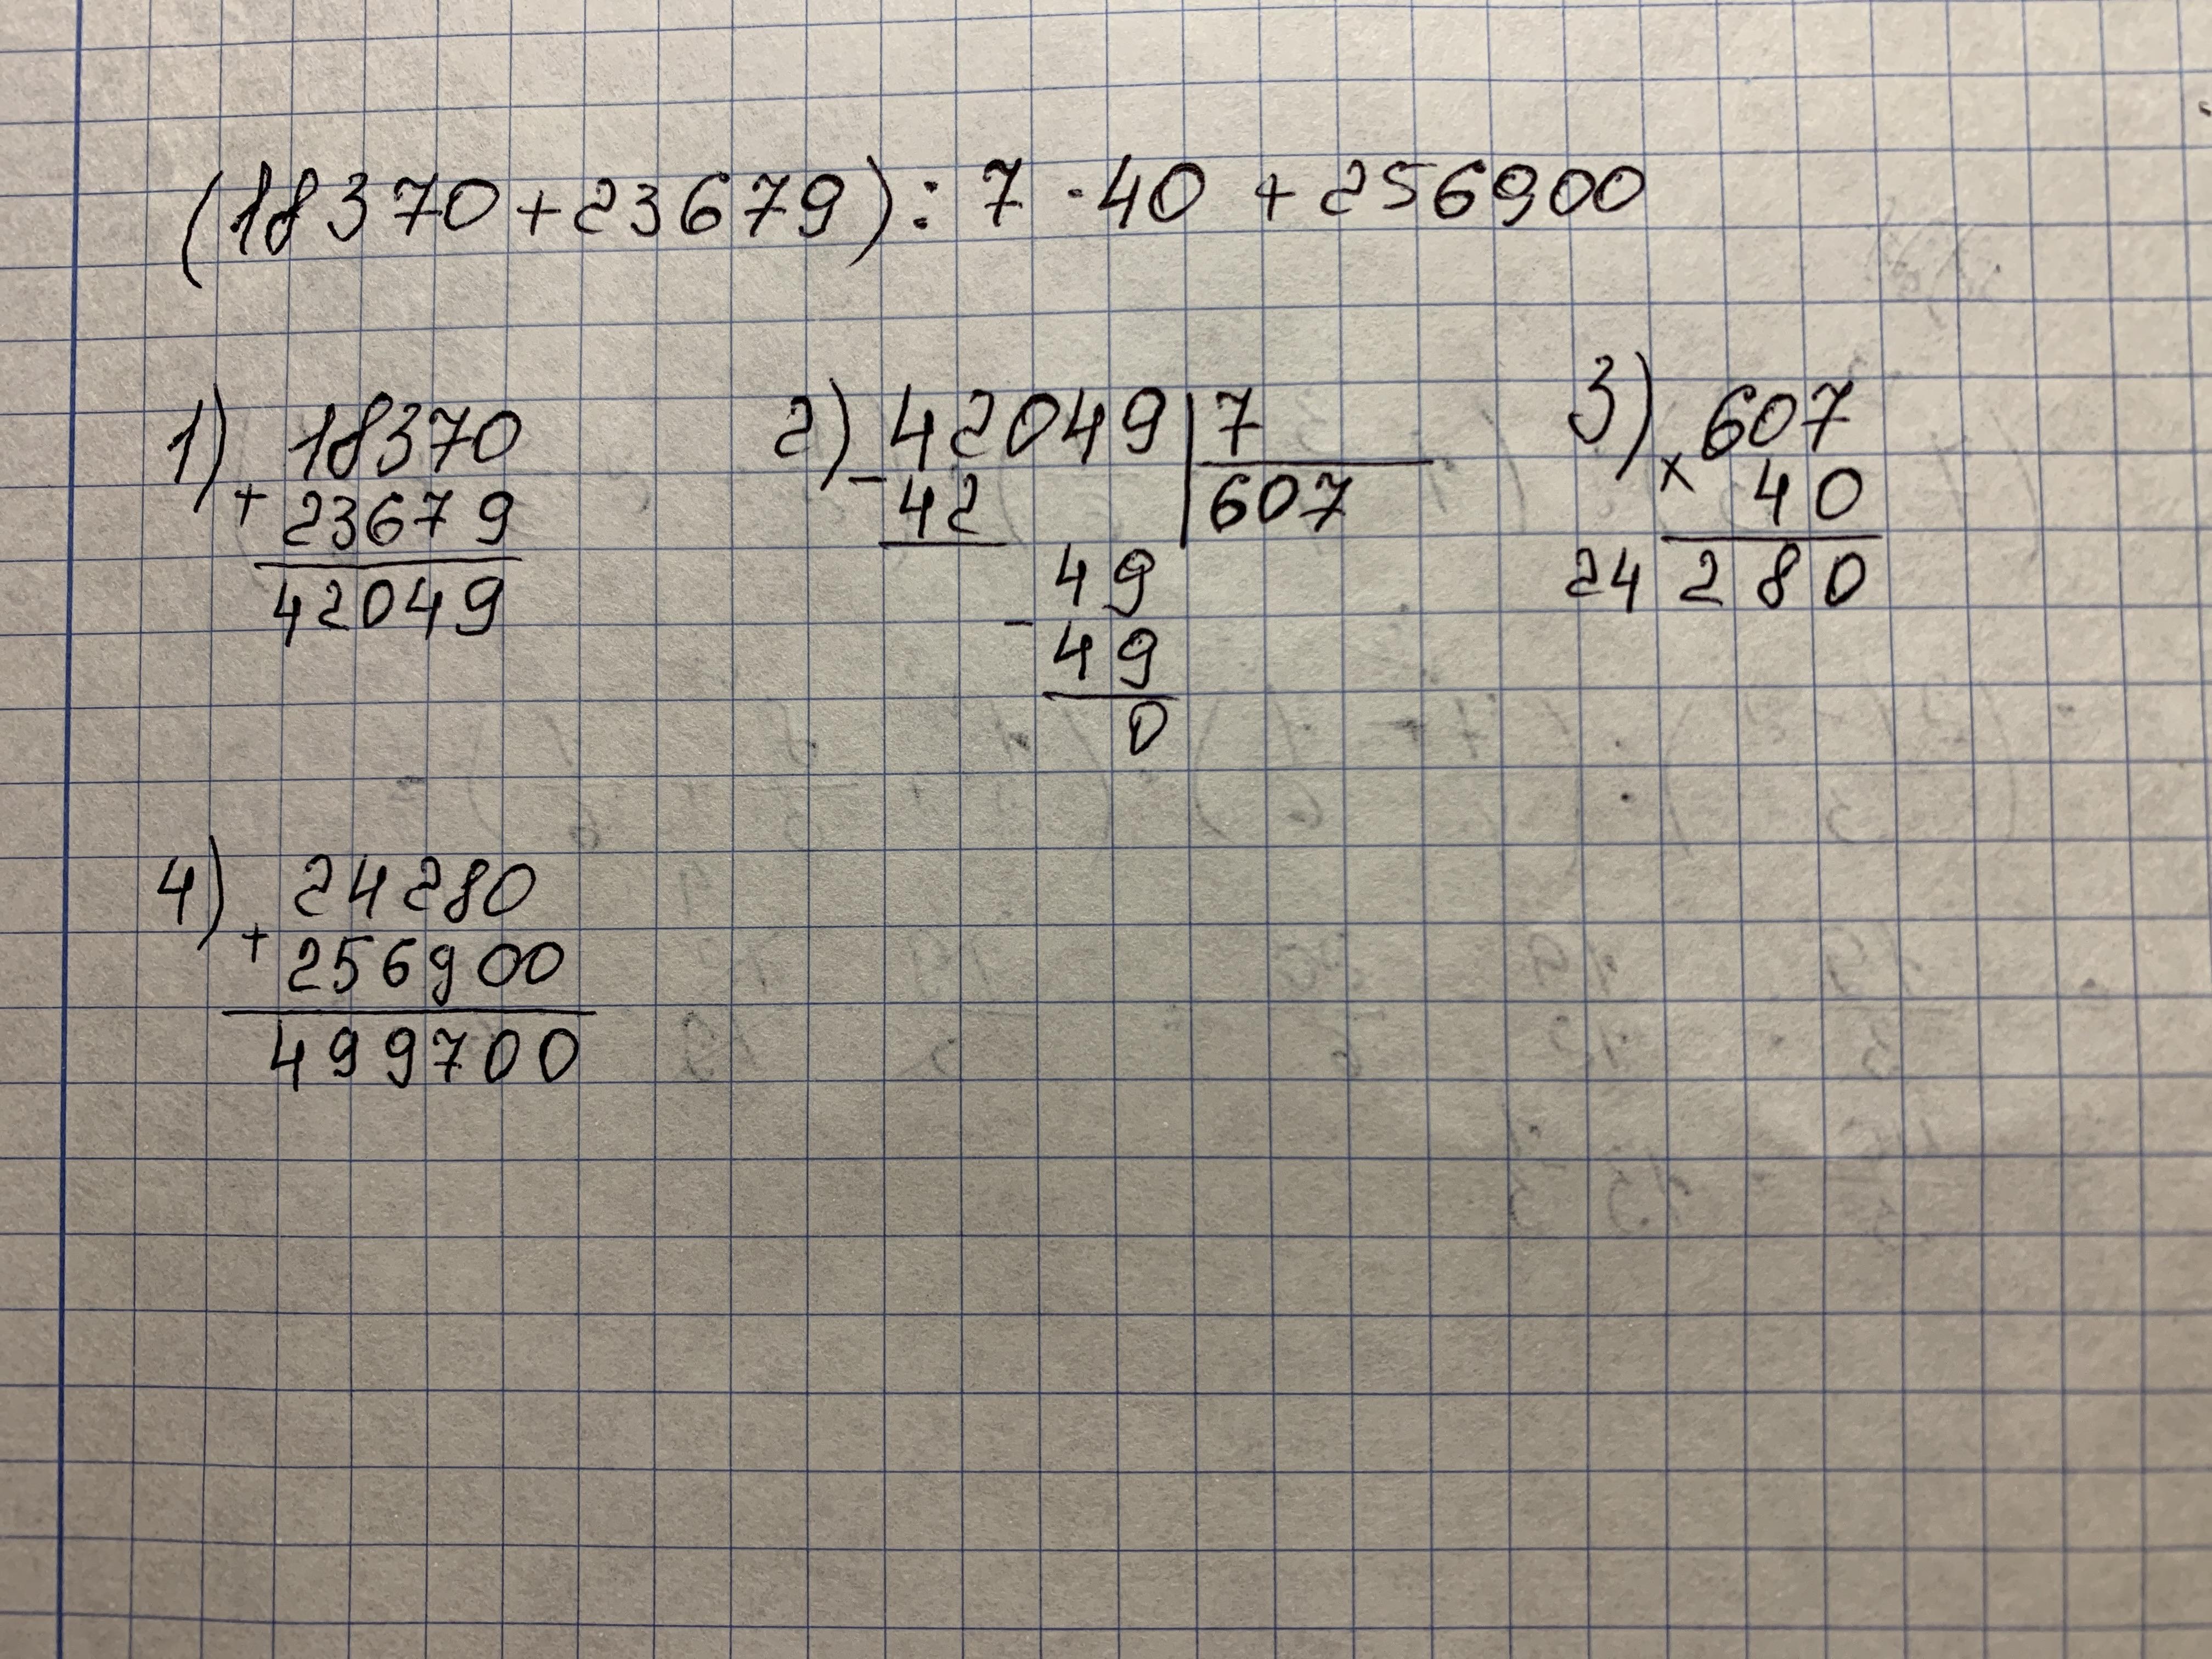 (18370+23679):7·40+256900
1) 18370
+ 23679
42049
2) 42049 | 7
- 42 607
49
- 49
0
3) 607
× 40
24280
4) 24280
+ 256900
499700